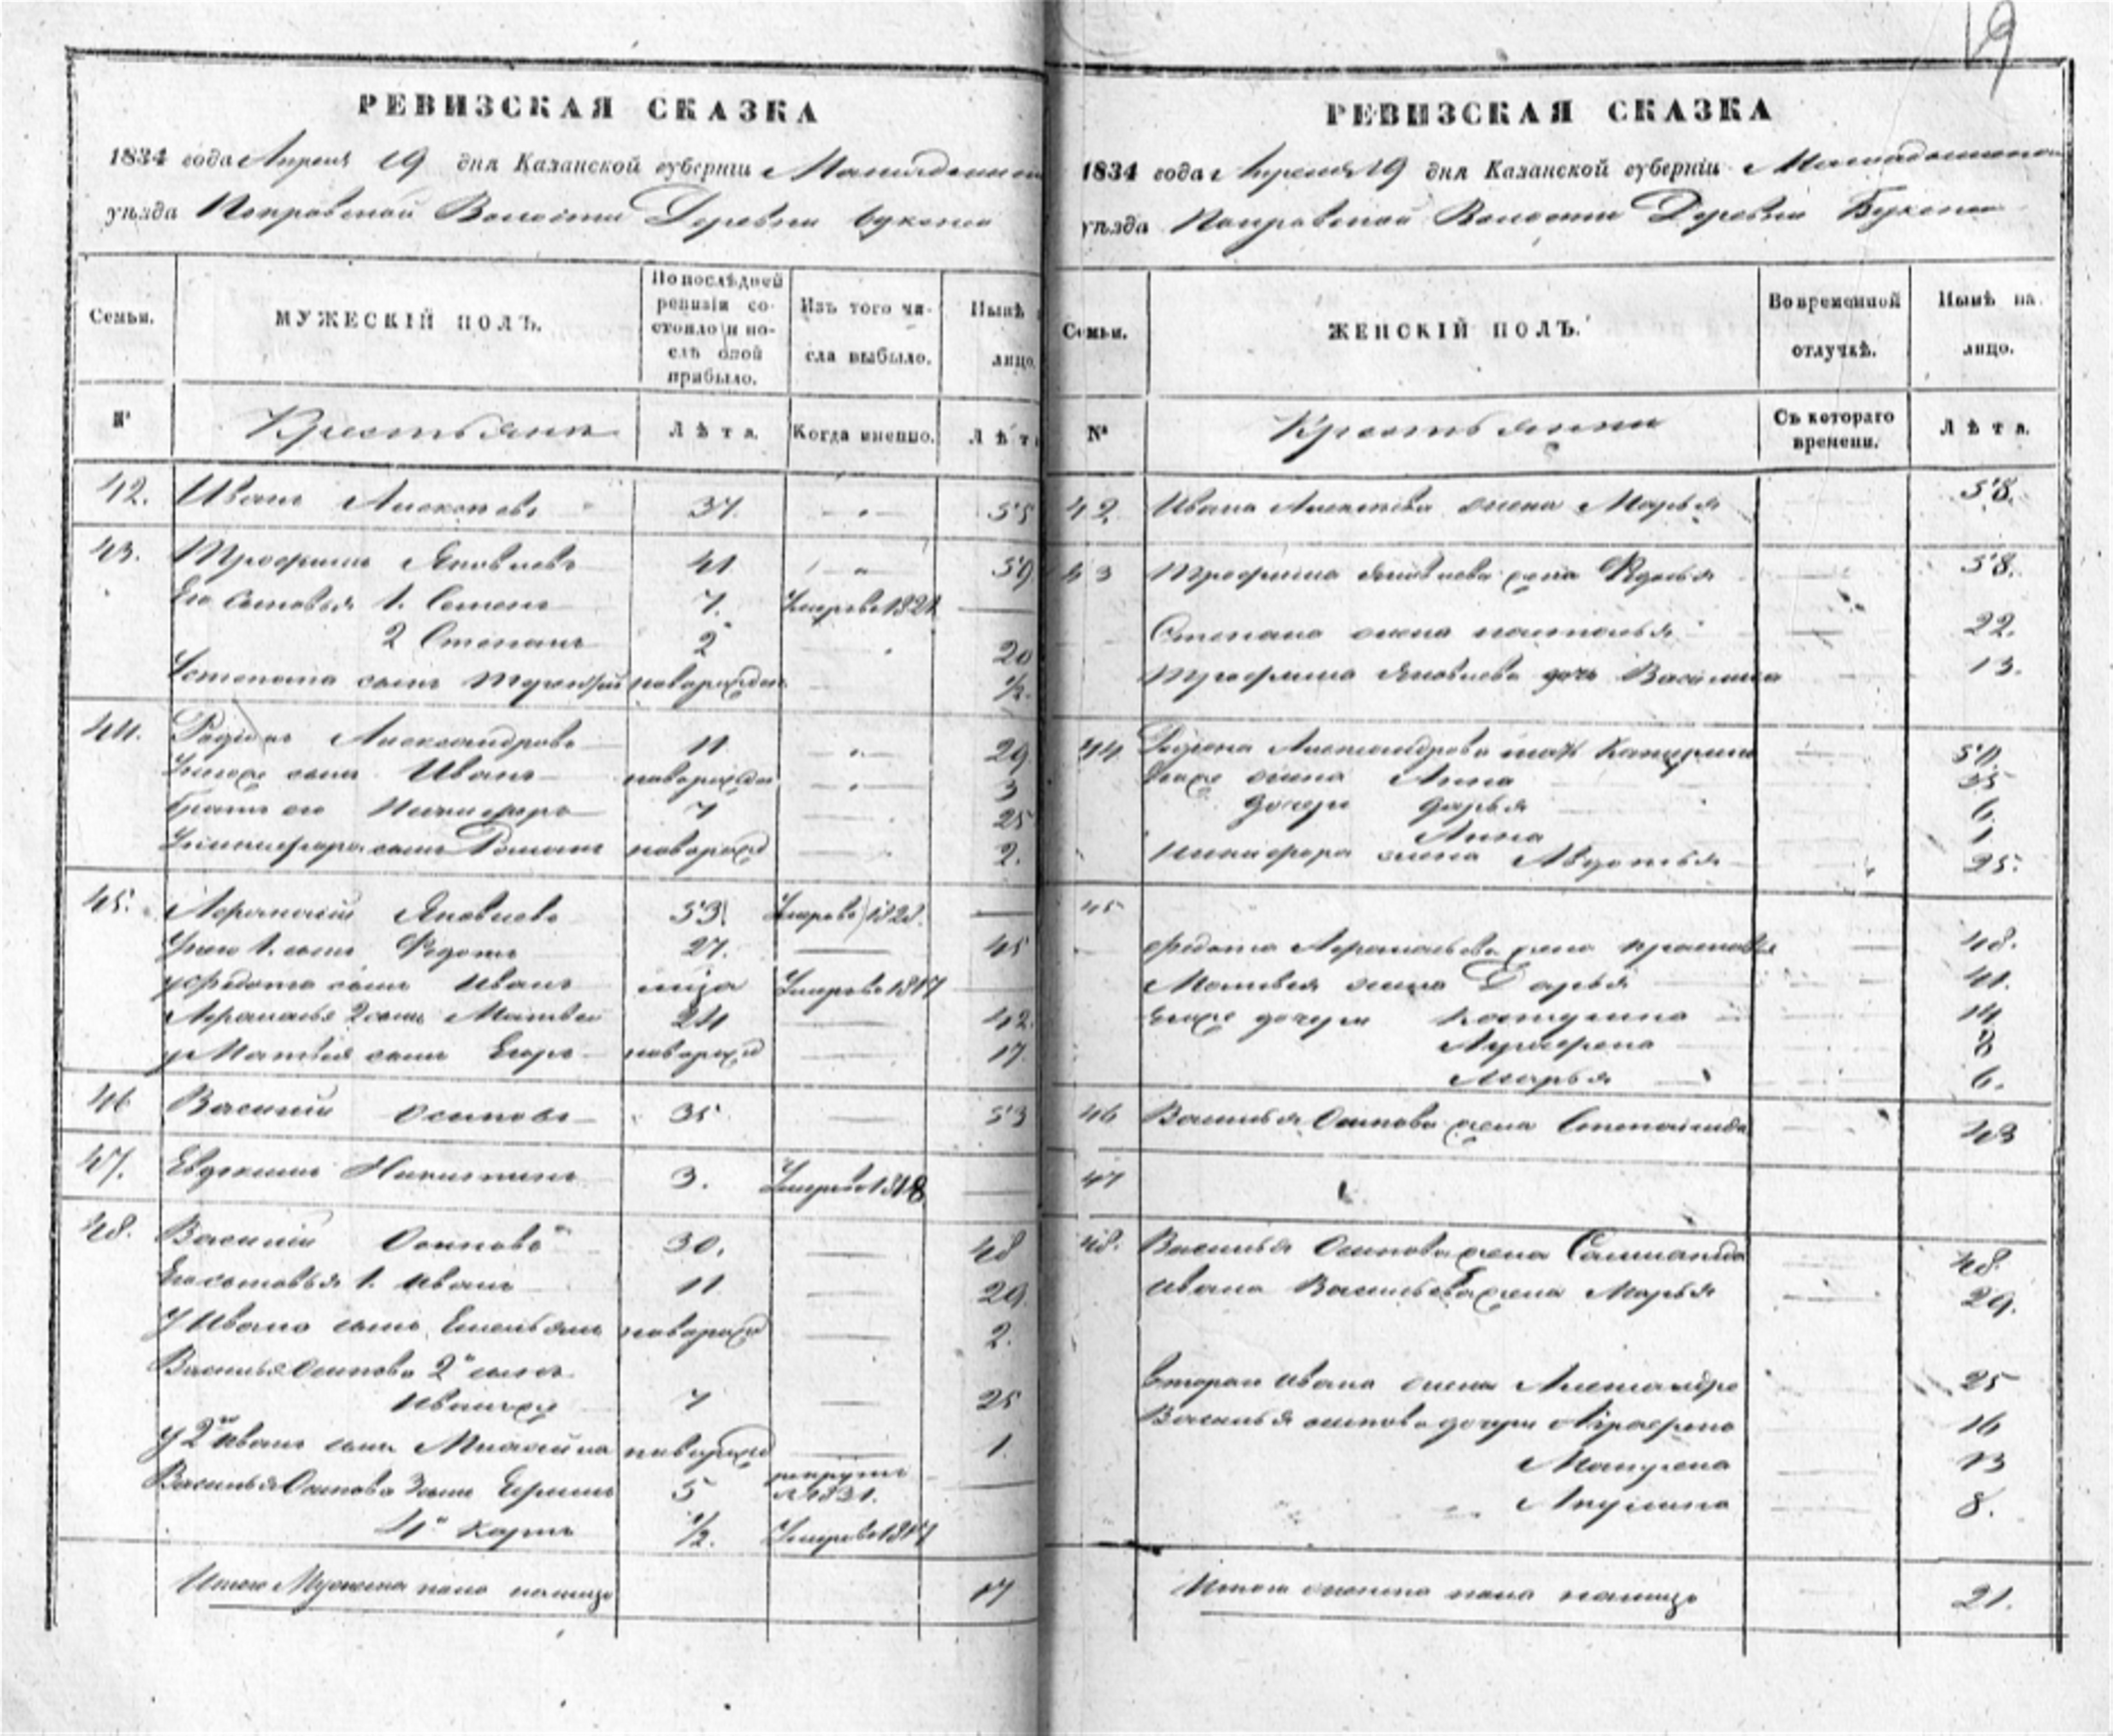 19
РЕВИЗСКАЯ СКАЗКА
1834 года Апреля 19 дня Казанской губерніи
уѣзда Волости Деревни
Семьи.
МУЖЕСКІЙ ПОЛЪ.
По послѣдней ревизіи состояло и послѣ оной прибыло.
Изъ того числа выбыло.
Нынѣ
лицо.
№
Крестьяне
Лѣта.
Когда именно.
Лѣт
42. Иванъ 37 55
43. Трофимъ Яковлевъ 41 59
Его сыновья 1. Семенъ 7. Умеръ в
2 Степанъ 2 20
У Степана сынъ новорожден ½.
44. Александровъ 11 29
У него же сынъ Иванъ новорожден 3
Братъ его Никифоръ 7 25
У Никифора сынъ Романъ новорожд 2.
45. Афанасій Яковлевъ 53 Умеръ в
У него 1. сынъ Федотъ 27. 45
У Федота сынъ Иванъ Умеръ в 1817
Афанасья 2 сынъ Матвей 24 42.
У Матвея сынъ Егоръ новорожд 17.
46 Василій Осиповъ 35 53
47. Евдокимъ Никитинъ 3. Умеръ в 1818
48. Василій Осиповъ 30. 48
Его сыновья 1. Иванъ 11 29.
У Ивана сынъ Емельянъ новорожд 2.
Василья Осипова 2й сынъ
Иванъ же 7 25
У 2го Ивана сынъ новорожд 1.
Василья Осипова 3 сынъ 5 рекрутъ
в 1831.
4й Карпъ ½. Умеръ в 1817
Итого Мужеска пола налицо 17
РЕВИЗСКАЯ СКАЗКА
1834 года Апреля 19 дня Казанской губерніи
уѣзда Волости Деревни
Семьи.
ЖЕНСКІЙ ПОЛЪ.
Во временной отлучкѣ.
Нынѣ на лицо.
№
Съ котораго времени.
Лѣта.
42. Ивана жена Марья 58.
43 Трофима Яковлева жена 58.
Степана жена Наталья 22.
Трофима Яковлева дочь Василиса 13.
44 Александрова мать Катерина
Его же жена Анна 35
дочери Дарья 6.
Анна 1
Никифора жена Авдотья 25.
45
Федота Афанасьева жена 48.
Матвея жена Дарья 41.
Его же дочери 14
8
Марья 6.
46 Василья Осипова жена Степанида 48
47
48. Василья Осипова жена 48
Ивана Васильева жена Марья 29.
Втораго Ивана жена 25
Василья Осипова дочери 16
Матрена 13
Акулина 8.
Итого женска пола налицо 21.